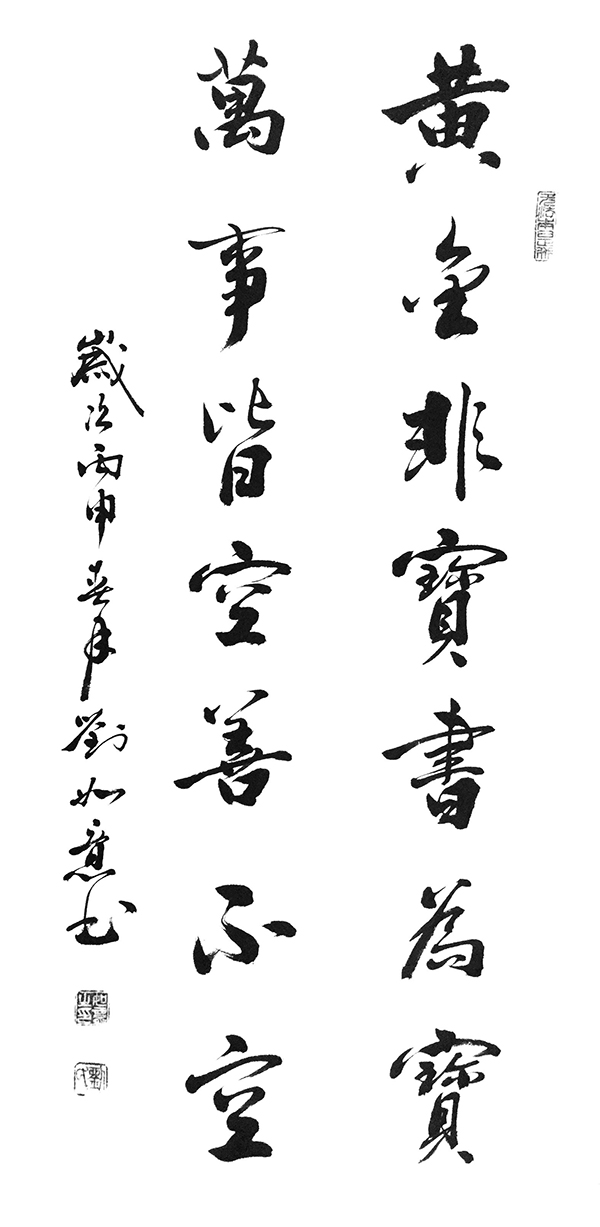 黃金非寶書為寶
萬事皆空善不空
歲次丙申春月劉如意书